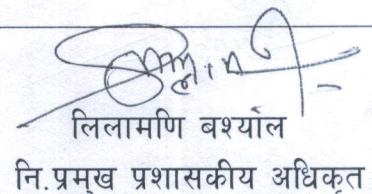 लिलामणि बश्याल
नि.प्रमुख प्रशासकीय अधिकृत